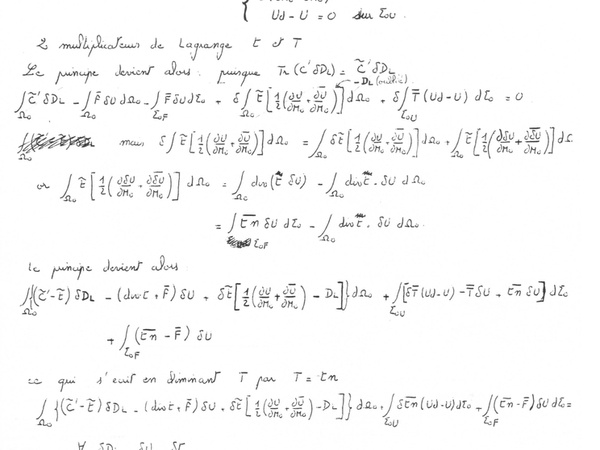 Ud - U = 0 sur Σ₀U.
2 multiplicateurs de Lagrange t et T
Le principe devient alors puisque Tr(C'δDL) = C̃'δDL
- DL (oublié)
∫Ω₀ C̃'δDL - ∫Ω₀ F̄ δU dΩ₀ - ∫Σ₀F F̄ δU dΣ₀ + δ∫Ω₀ t̃[1/2(∂U/∂M₀ + ∂Ū/∂M₀)] dΩ₀ + δ∫Σ₀U T̄(Ud-U) dΣ₀ = 0
mais δ∫Ω₀ t̃[1/2(∂U/∂M₀ + ∂Ū/∂M₀)] dΩ₀ = ∫Ω₀ δt̃[1/2(∂U/∂M₀ + ∂Ū/∂M₀)] dΩ₀ + ∫Ω₀ t̃[1/2(∂δU/∂M₀ + ∂δŪ/∂M₀)] dΩ
or ∫Ω₀ t̃[1/2(∂δU/∂M₀ + ∂δŪ/∂M₀)] dΩ₀ = ∫Ω₀ div(t̃ δU) - ∫Ω₀ div t̃ . δU dΩ₀
= ∫Σ₀F tn δU dΣ₀ - ∫Ω₀ div t . δU dΩ₀
le principe devient alors
∫Ω₀ {(C̃'-t̃) δDL - (div t + F̄) δU + δt̃[1/2(∂U/∂M₀ + ∂Ū/∂M₀) - DL]} dΩ₀ + ∫Σ₀U [δT̄(Ud-U) - T̄δU + tn δU] dΣ₀
+ ∫Σ₀F (tn - F̄) δU
ce qui s'ecrit en éliminant T par T = tn
∫Ω₀ {(C̃'-t̃) δDL - (div t + F̄) δU + δt̃[1/2(∂U/∂M₀ + ∂Ū/∂M₀) - DL]} dΩ₀ + ∫Σ₀U δtn(Ud-U) dΣ₀ + ∫Σ₀F (tn-F̄) δU dΣ₀ =